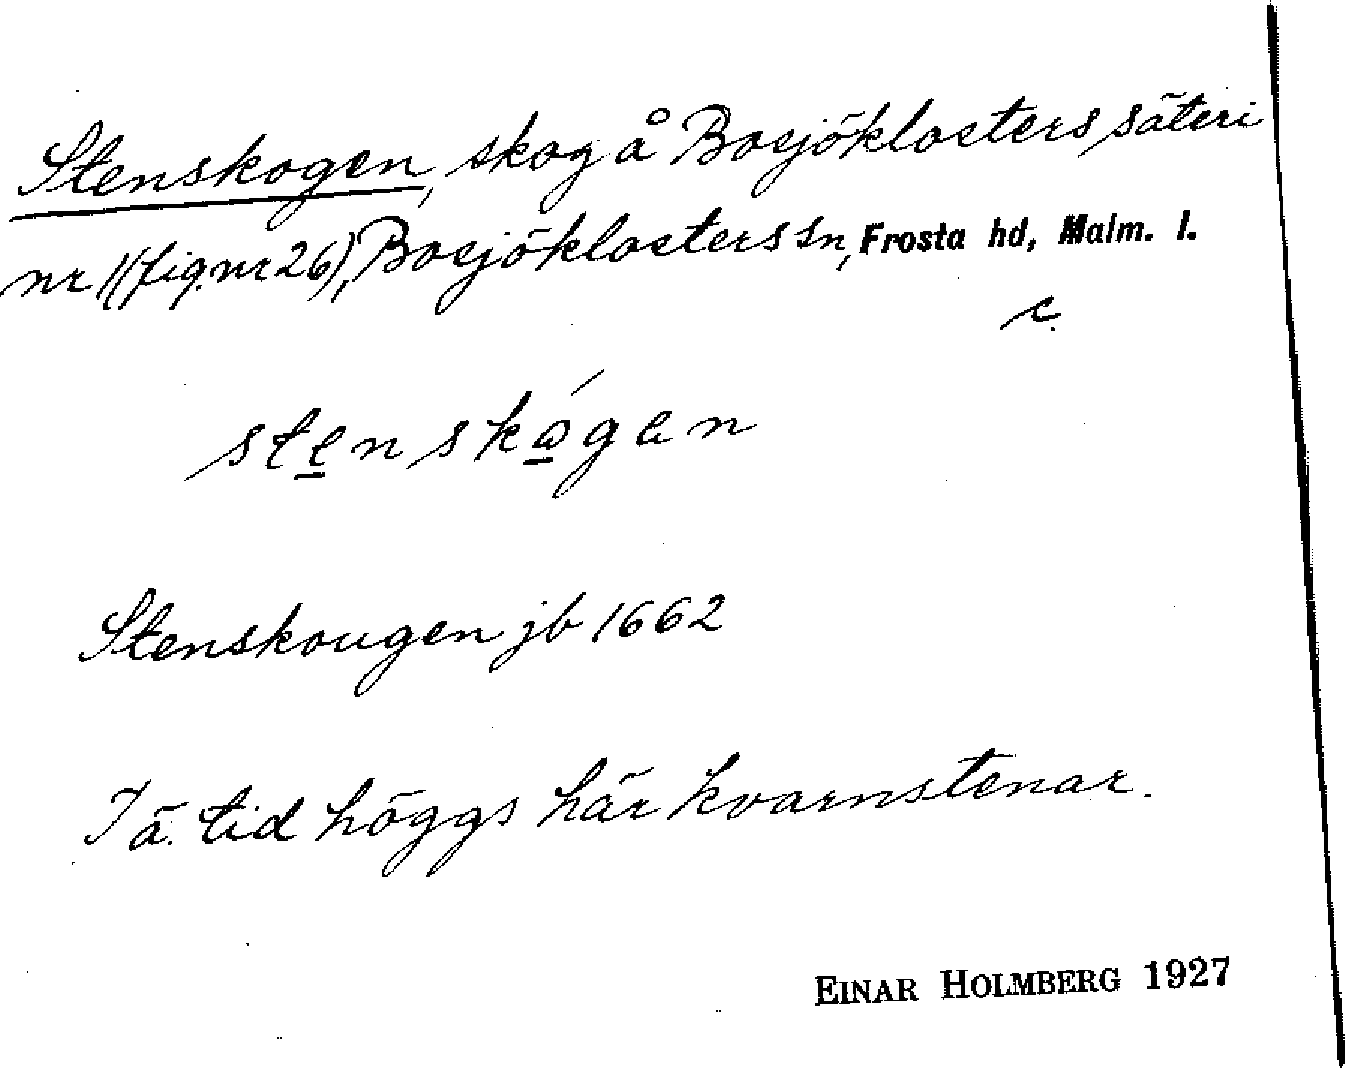 Stenskogen, skog å Bosjöklosters säteri
nr 1 (fig. nr 26), Bosjöklosters sn, Frosta hd, Malm. l.
c.
stenskógen
Stenskougen jb 1662
I ä. tid höggs här kvarnstenar.
EINAR HOLMBERG 1927